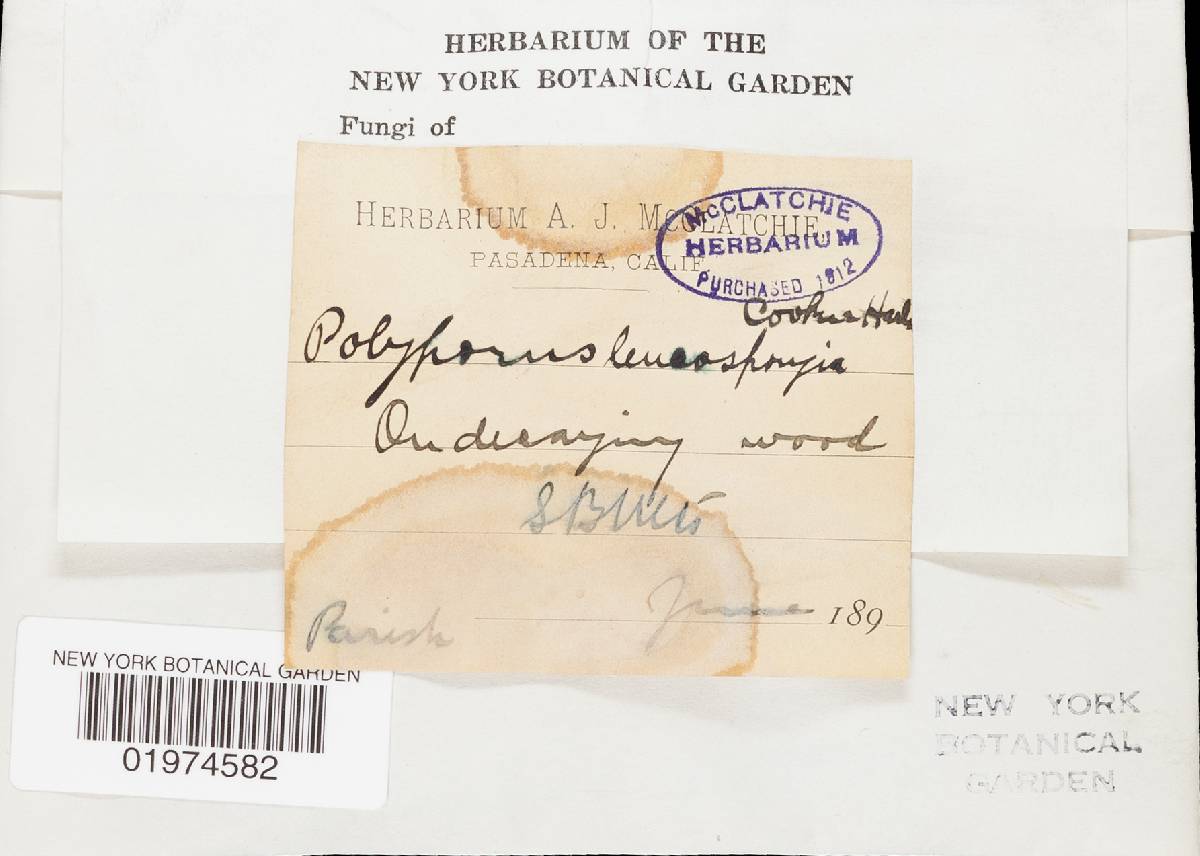 HERBARIUM OF THE
NEW YORK BOTANICAL GARDEN
Fungi of
HERBARIUM A. J. MCCLATCHIE
PASADENA, CALIF
McCLATCHIE
HERBARIUM
PURCHASED 1912
Cooke & Hark
Polyporus leucospongia
On decaying wood
S B Mts
June 189
Parish
NEW YORK BOTANICAL GARDEN
01974582
NEW YORK
BOTANICAL
GARDEN